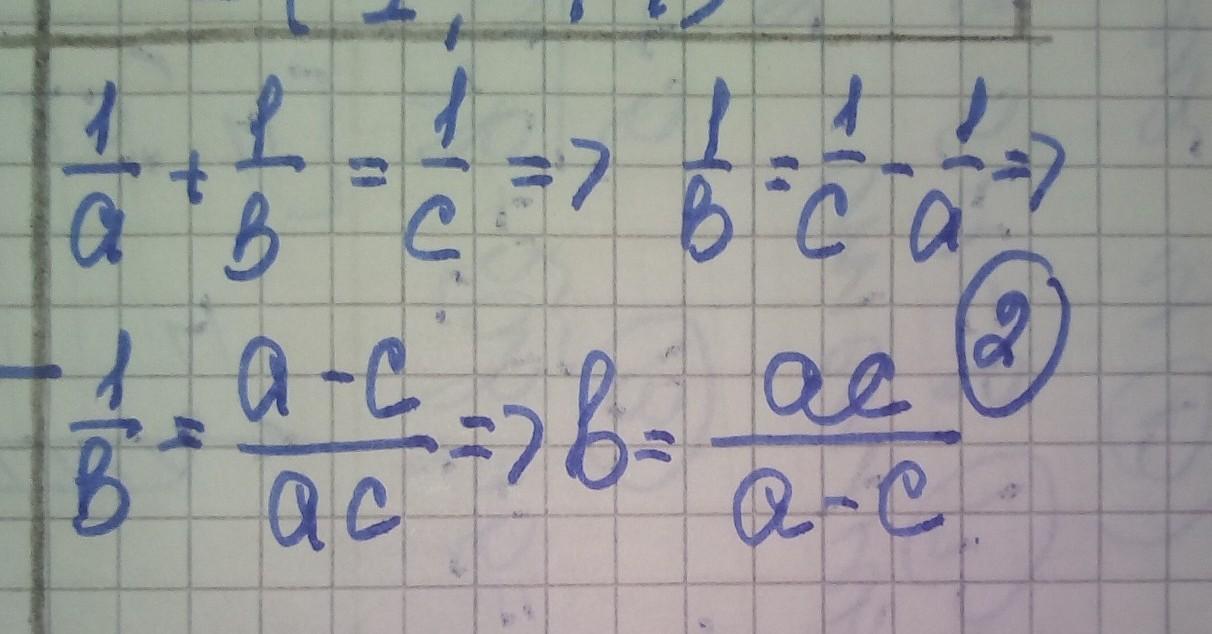 1/a + 1/b = 1/c => 1/b = 1/c - 1/a =>
1/b = a-c/ac => b = ac/a-c (2)